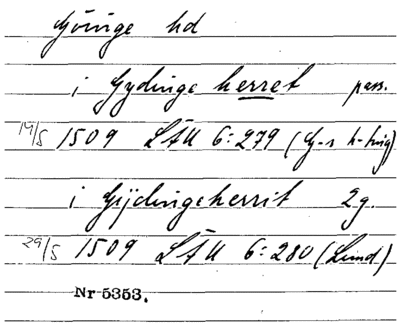 Göinge hd
i Gydinge herret pass.
19/5 1509 LÄU 6:279 (G-s h-ting)
i Gijdingeherrit 2g.
29/5 1509 LÄU 6:280 (Lund)
Nr 5353.